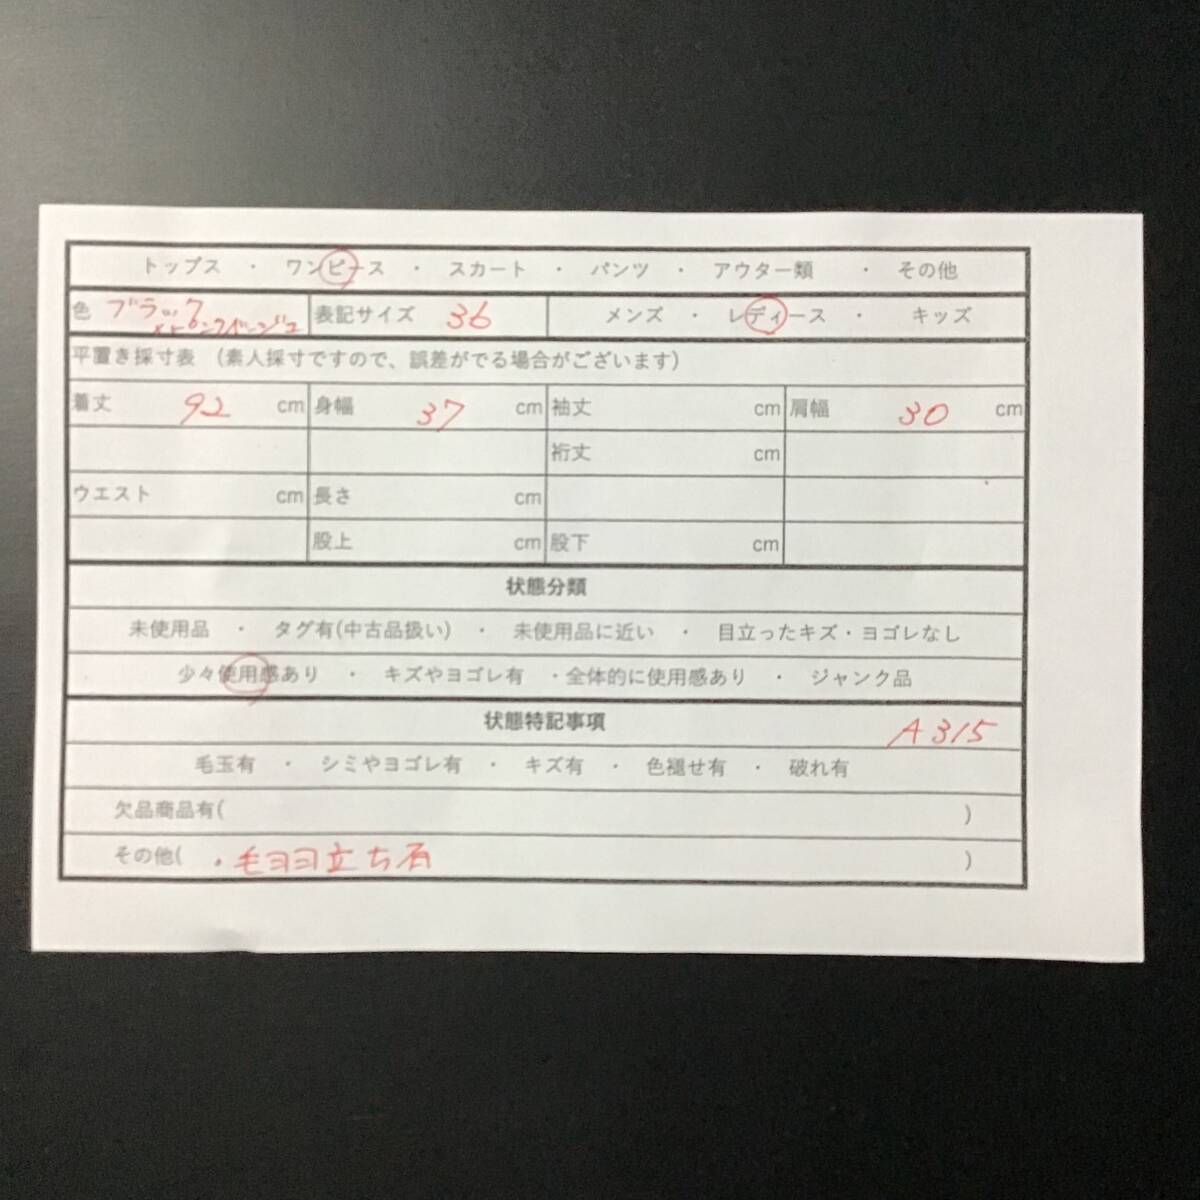 トップス ・ ワンピース ・ スカート ・ パンツ ・ アウター類 ・ その他
色 ブラック 表記サイズ 36 メンズ ・ レディース ・ キッズ
平置き採寸表 （素人採寸ですので、誤差がでる場合がございます）
着丈 92 cm 身幅 37 cm 袖丈 cm 肩幅 30 cm
裄丈 cm
ウエスト cm 長さ cm
股上 cm 股下 cm
状態分類
未使用品 ・ タグ有(中古品扱い) ・ 未使用品に近い ・ 目立ったキズ・ヨゴレなし
少々使用感あり ・ キズやヨゴレ有 ・全体的に使用感あり ・ ジャンク品
状態特記事項 A315
毛玉有 ・ シミやヨゴレ有 ・ キズ有 ・ 色褪せ有 ・ 破れ有
欠品商品有( )
その他( 毛ヨヨ立ち有 )